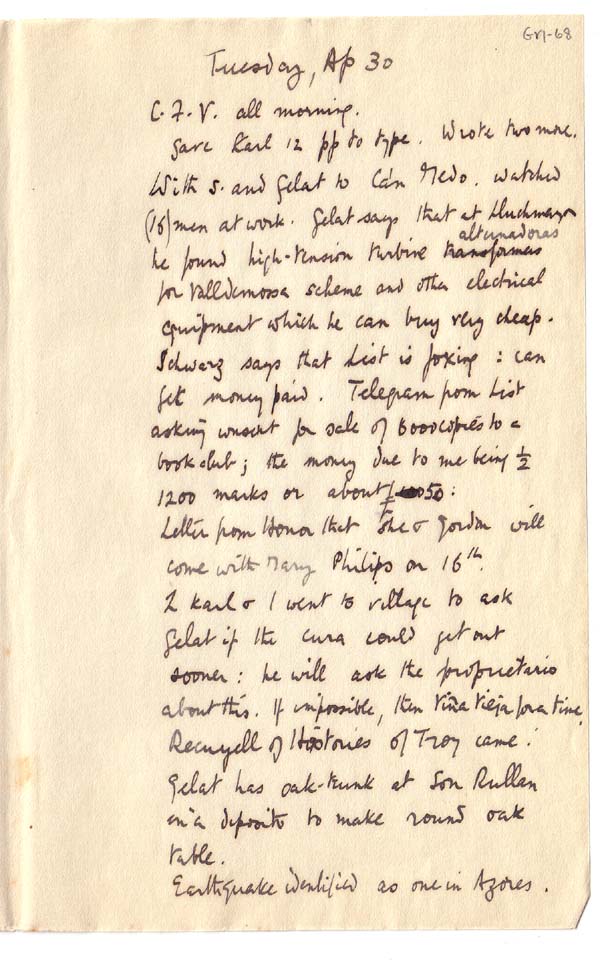 GM-68
Tuesday, Ap 30
C.F.V. all morning.
Gave Karl 12 pp to type. Wrote two more.
With S. and Gelat to Ca'n Medo. watched
(16) men at work. Gelat says that at Lluchmayor
alternadoras
he found high-tension turbine transformers
for Valldemossa scheme and other electrical
equipment which he can buy very cheap.
Schwarz says that List is foxing : can
get money paid. Telegram from List
asking consent for sale of 6000 copies to a
book club; the money due to me being ½
1200 marks or about £ 50 :
Letter from Honor that she & Gordon will
come with Mary Philips on 16th.
L Karl & I went to village to ask
Gelat if the cura could get out
sooner : he will ask the proprietario
about this. If impossible, then Viña Vieja for a time.
Recuyell of Histories of Troy came!
Gelat has oak-trunk at Son Rullan
in a deposito to make round oak
table.
Earthquake identified as one in Azores.